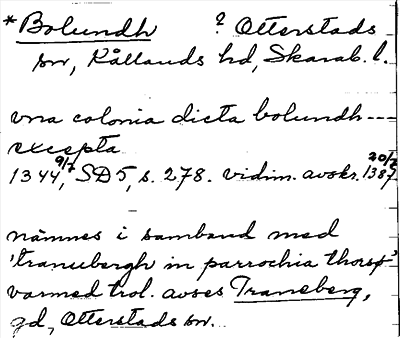 *Bolundh ? Otterstads
sn, Kållands hd, Skarab. l.
vna colonia dicta bolundh ---
excepta
1344 9/7, SD5, s. 278. vidim. avskr. 1387 20/2
nämnes i samband med
'tranubergh in parrochia thorsp'
varmed trol. avses Traneberg,
gd, Otterstads sn.